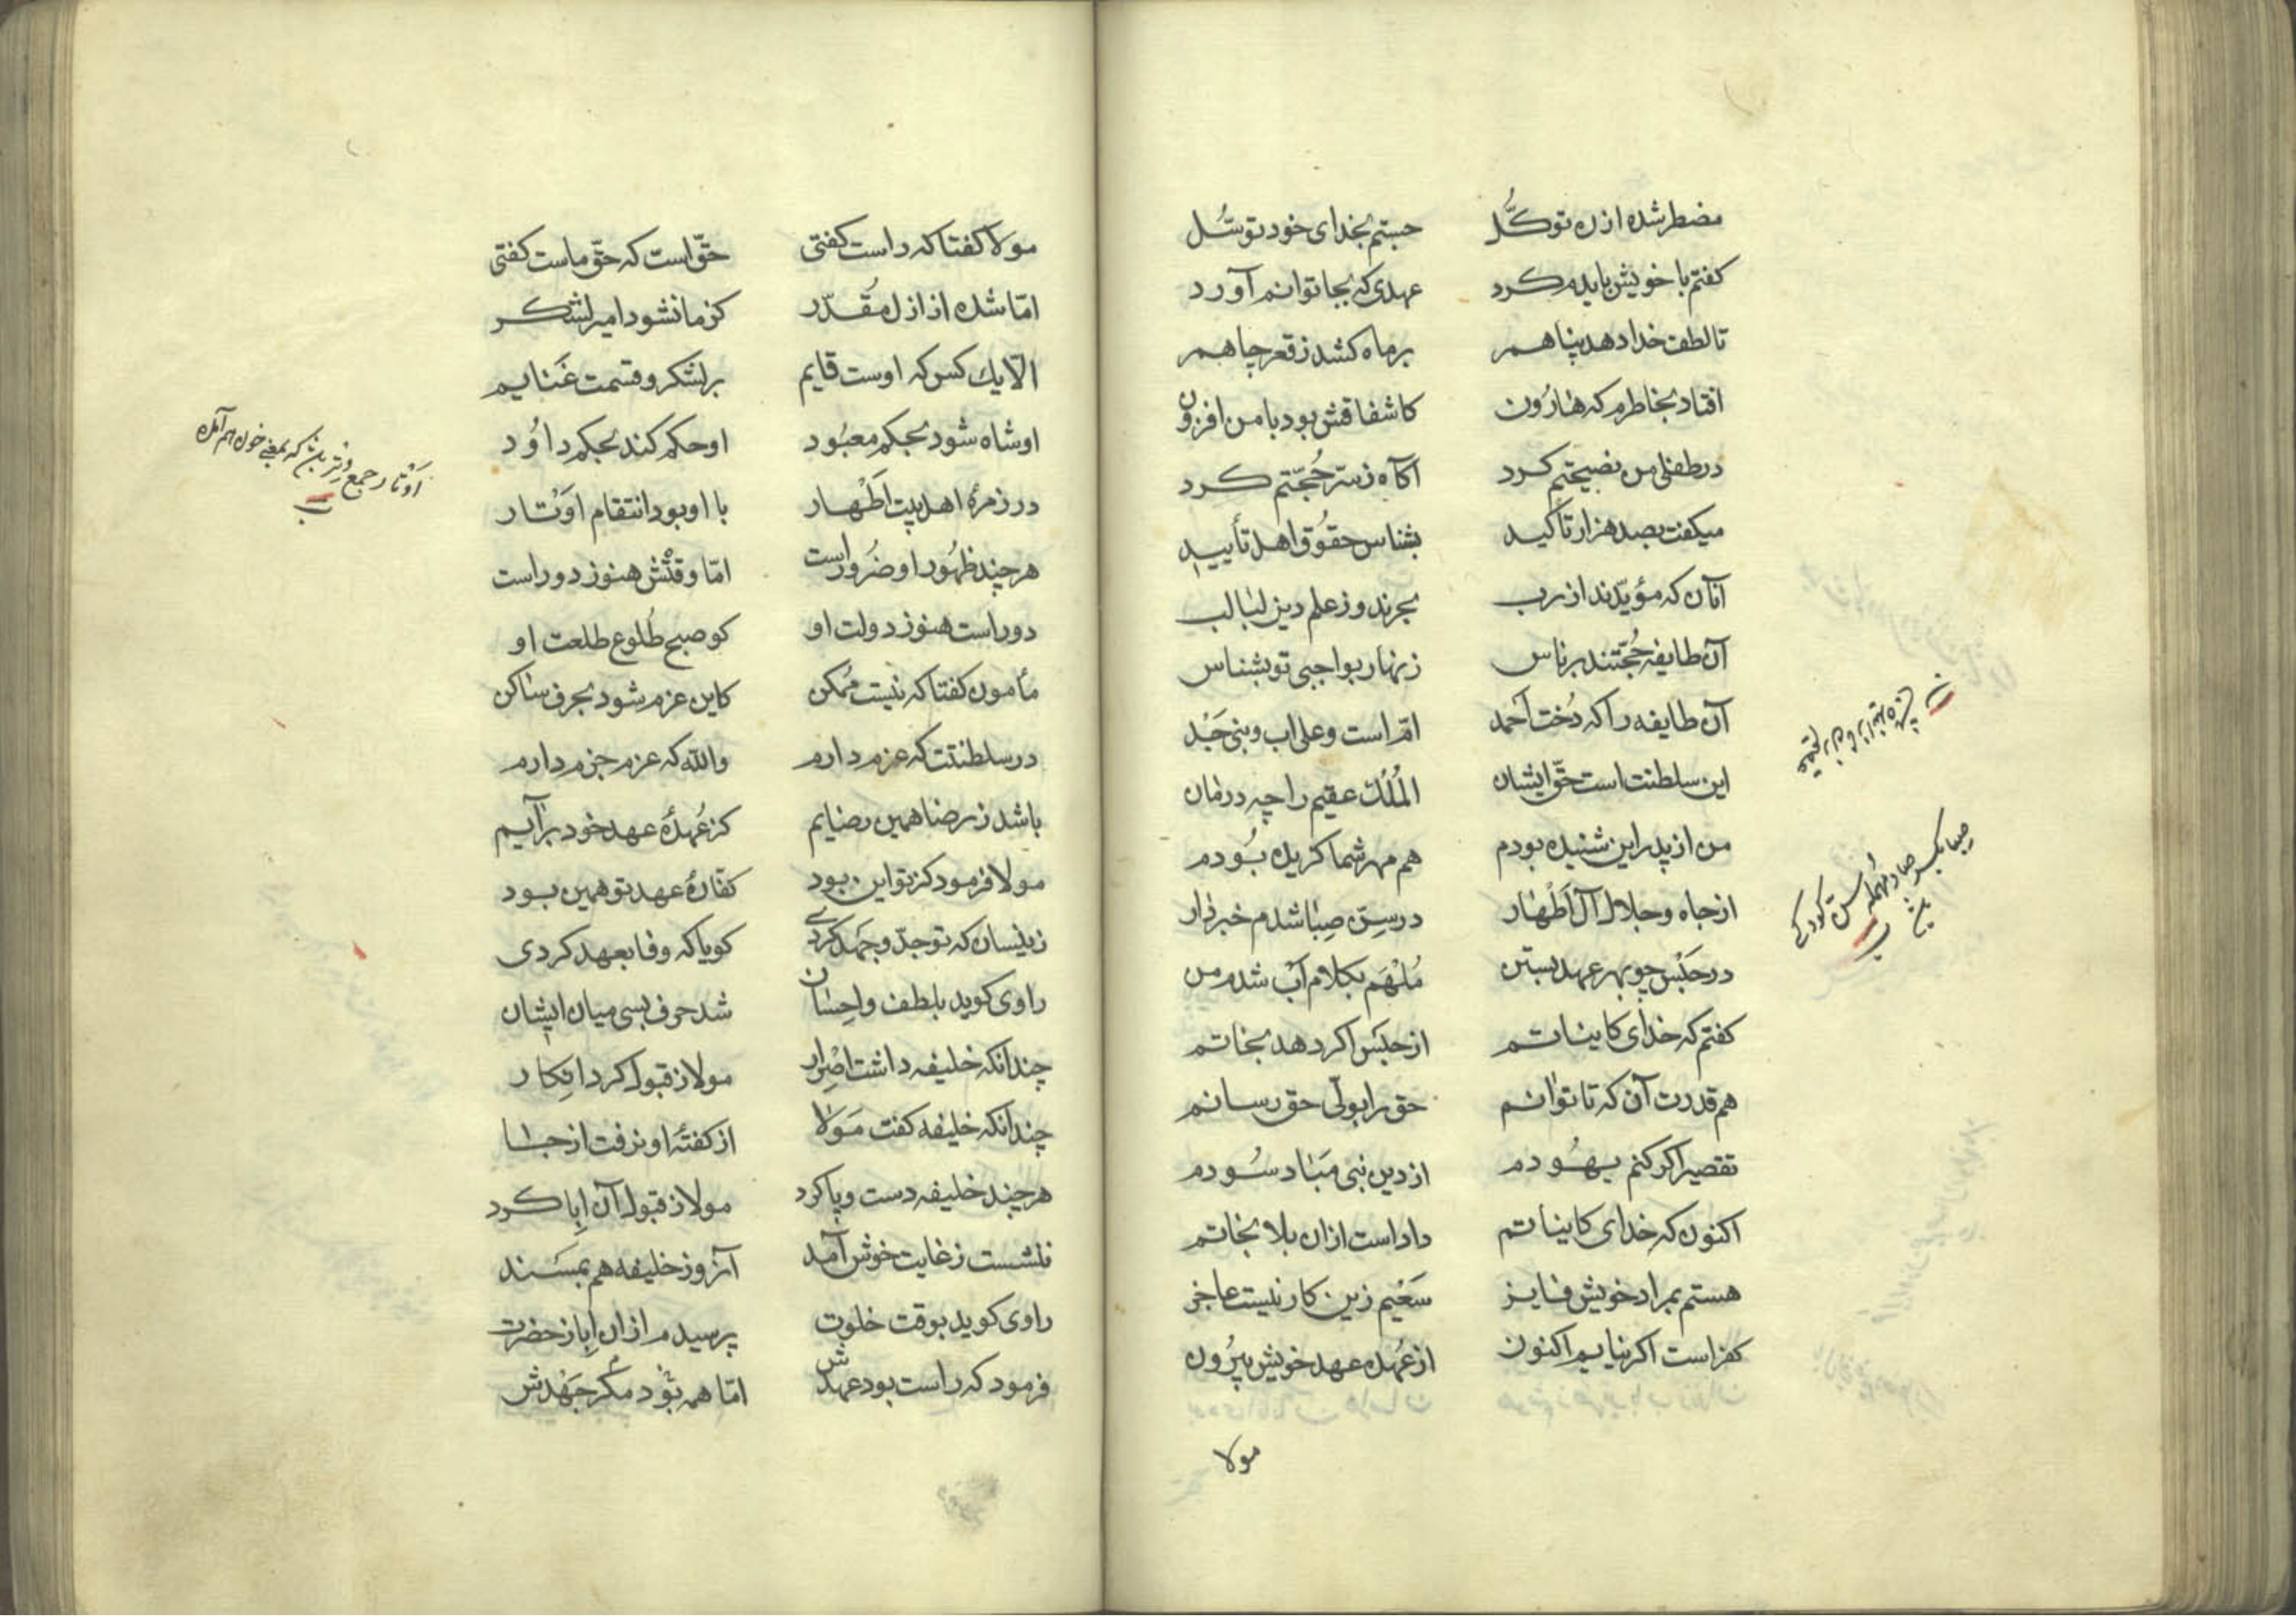 مضطر شده از ره توکّل جستم بخدای خود توسّل
کفتم با خویش بایدم کرد عهدی که بجا توانم آورد
تا لطف خدا دهد پناهم بر ماه کشد ز قعر چاهم
افتاد بخاطرم که هارُون کاشفاقش بود با من افزون
در طفلی من نصیحتم کرد آکاه ز سرّ حُجّتم کرد
میکفت بصد هزار تأکید بشناس حقُوق اهل تأیید
آنان که مؤیّدند از رب بحرند و ز علم دین لبالب
آن طایفه حُجّتند بر ناس زنهار بواجبی تو بشناس
آن طایفه را که دُخت احمد امّ است و علی اب و نبی جَد
این سلطنت است حقّ ایشان المُلکُ عقیم را چه درمان
من از پدر این شنیده بودم هم مهر شما کزیده بُودم
از جاه و جلال آل اَطْهار در سِنّ صِبا شدم خبردار
در حَبْس چو بهر عهد بستن مُلْهَم بکلام اَبْ شدم من
کفتم که خدای کایناتم از حَبْس اکر دهد نجاتم
هم قدرت آن که تا توانم حق را بولّی حق رسانم
تقصیر اکر کنم یهُودم از دین نبی مَباد سُودم
اکنون که خدای کایناتم داداست ازان بلا نجاتم
هستم بمراد خویش فایز سَعْیم زین کار نیست عاجز
کفر است اکر نیایم اکنون از عُهدهٔ عهد خویش بیرُون
مولا
صبا بکسر صاد مهمله سن کودکی
مولا کفتا که راست کفتی حقّ است که حقّ ماست کفتی
امّا شده از ازل مُقدّر کز ما نشود امیر لشکر
الّا یک کس که اوست قایم بر لشکر و قسمت غَنایم
او شاه شود بحکم معبُود او حکم کند بحکم داوُد
در زمرهٔ اهل بیت اَطْهار با او بود انتقام اَوْتار
هر چند ظهُور او ضُرور است امّا وقتْش هنوز دور است
دور است هنوز دولت او کو صبح طُلوع طلعت او
مأمون کفتا که نیست مُمکن کاین عزم شود بحرف ساکن
در سلطنتت که عزم دارم والله که عزم جزم دارم
باشد ز رضا همین رضایم کز عُهدهٔ عهد خود برآیم
مولا فرمود کز تو این بود کفّارهٔ عهد تو همین بود
زینسان که تو جدّ و جهد کردی کویا که وفا بعهد کردی
راوی کوید بلطف و احِسان شد حرف بسی میان ایشان
چندانکه خلیفه داشت اصْرار مولا ز قبول کرد اِنکار
چندانکه خلیفه کفت مَولا از کفتهٔ او نرفت از جا
هر چند خلیفه دست و پا کرد مولا ز قبول آن اِبا کرد
ننشست ز غایت خوش آمد آنروز خلیفه هم بمسَند
راوی کوید بوقت خلوت پرسیدم ازان اِبا ز حضرت
فرمود که راست بود عهدش امّا همه بُود مکر جَهْدش
اَوْتار جمع وتر که بمعنی خون هم آمده